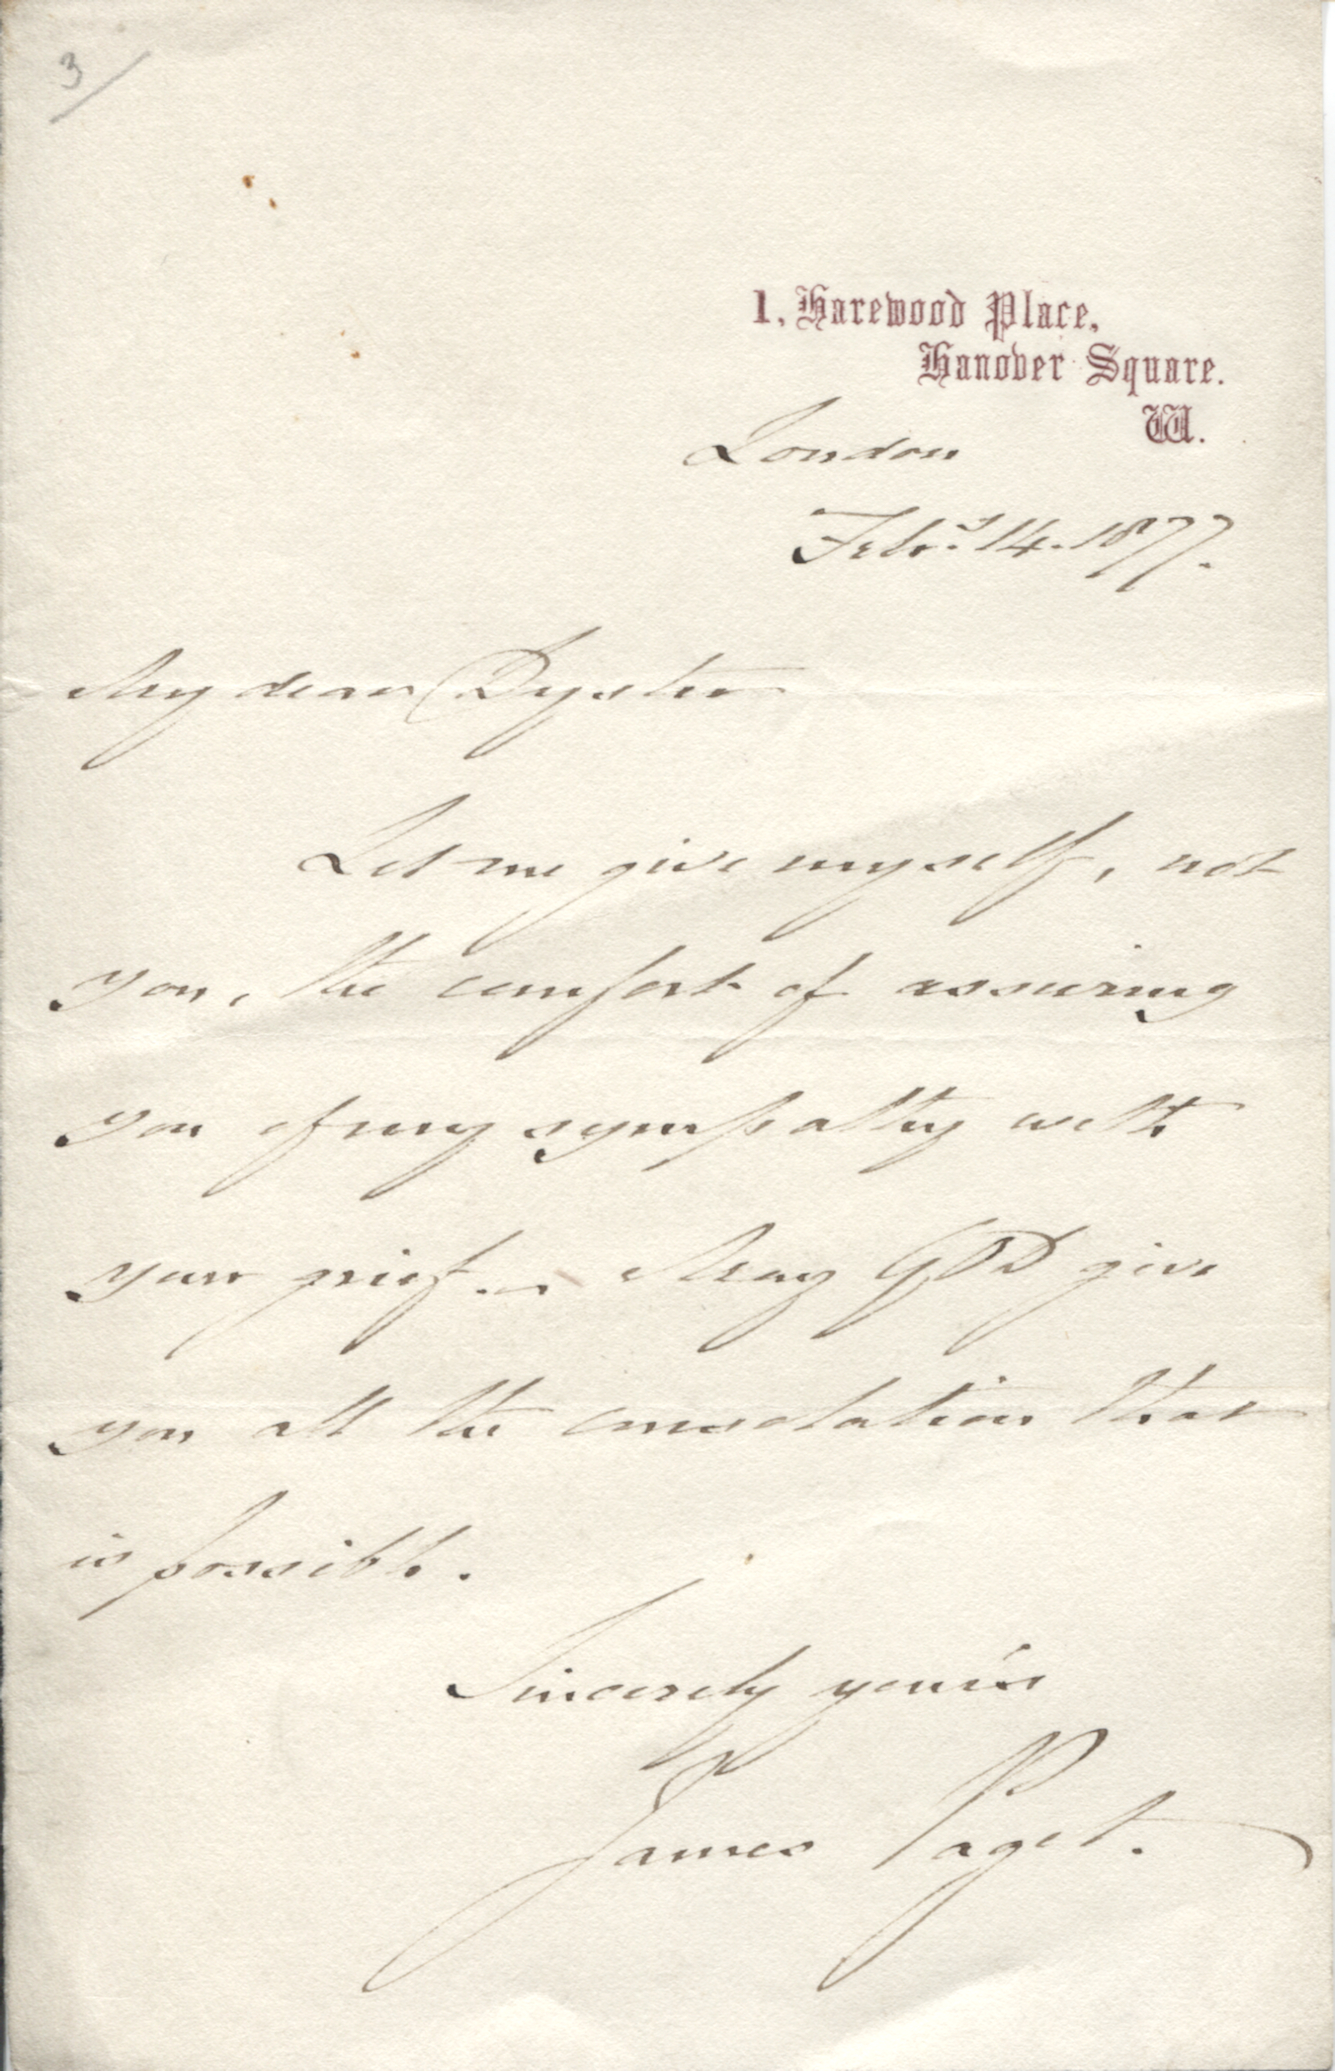 3/
1, Harewood Place,
Hanover Square.
W.
London
Feb.y 14. 1877.
My dear Dyster
Let me give myself, not
you, the comfort of assuring
you of my sympathy with
your grief. May GOD give
you all the consolation that
is possible.
Sincerely yours
James Paget.